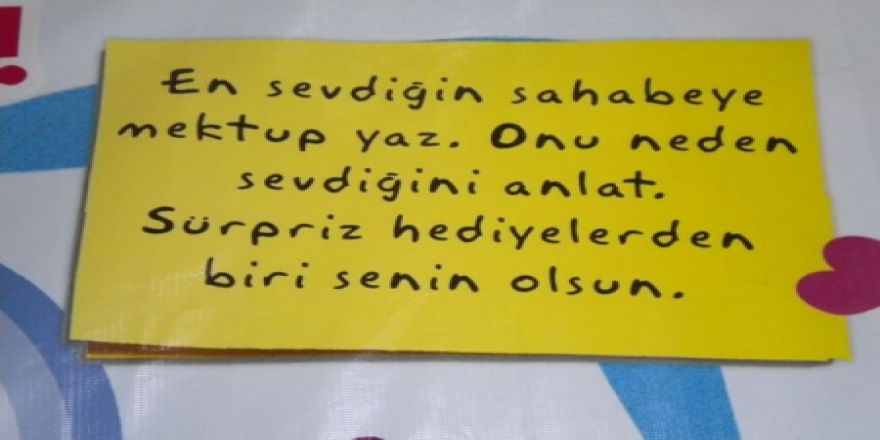 !
En sevdiğin sahabeye
mektup yaz. Onu neden
sevdiğini anlat.
Sürpriz hediyelerden
biri senin olsun.